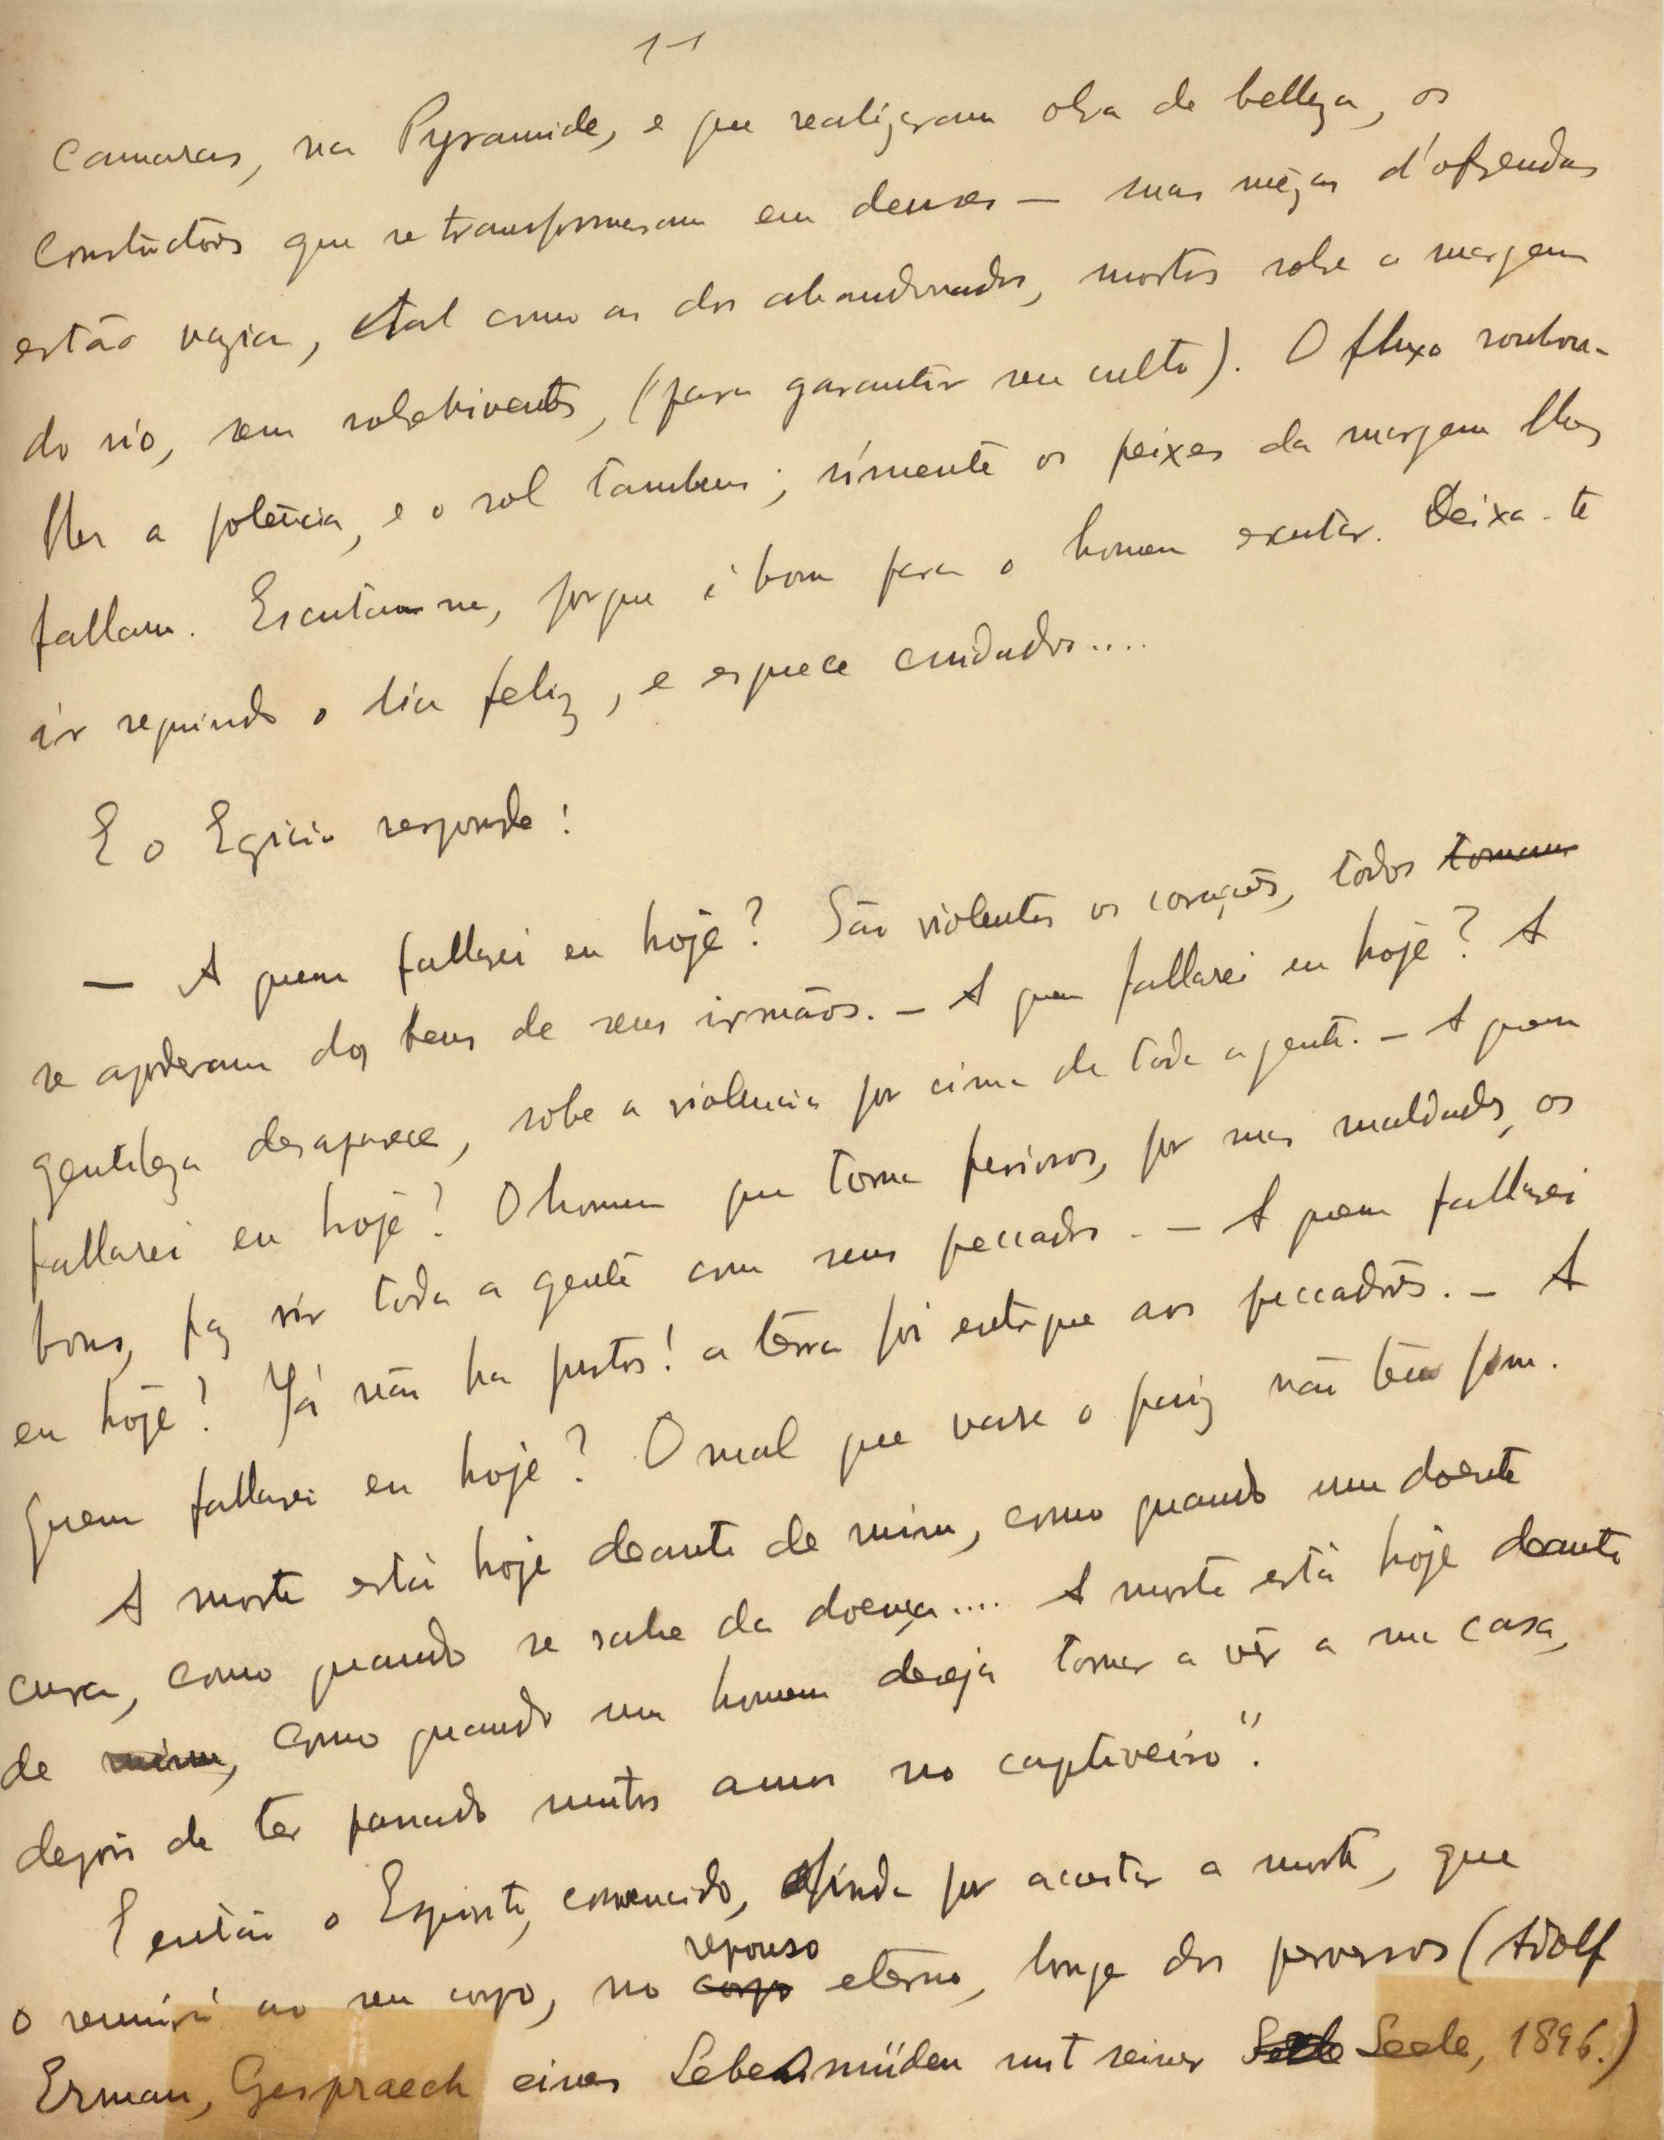 11
camaras, na Pyramide, e que realizaram obra de belleza, os
constructores que se transformaram em deuses — suas mezas d'offrendas
estão vazias, tal como as dos abandonados, mortos sobre a margem
do rio, sem sobreviventes, (para garantir seu culto). O fluxo roubou-
lhes a potencia, e o sol tambem; sómente os peixes da margem lhes
fallam. Escuta-me, porque é bom para o homem escutar. Deixa-te
ir seguindo o dia feliz, e esquece cuidados....
E o Egicio responde:
— A quem fallarei eu hoje? São violentos os corações, todos tomam
se apoderam dos bens de seus irmãos. — A quem fallarei eu hoje? A
gentileza desaparece, sobe a violencia por cima de toda a gente. — A quem
fallarei eu hoje? O homem que torna furiosos, por suas maldades, os
bons, faz rir toda a gente com seus peccados. — A quem fallarei
eu hoje? Já não ha justos! a terra foi entregue aos peccadores. — A
quem fallarei eu hoje? O mal que varre o paiz não tem fim.
A morte está hoje deante de mim, como quando um doente
cura, como quando se sahe da doença.... A morte está hoje deante
de mim, como quando um homem deseja tornar a vêr a sua casa,
depois de ter passado muitos annos no captiveiro".
E então o Espirito, convencido, finda por aceitar a morte, que
o reunirá ao seu corpo, no corpo repouso eterno, longe dos perversos (Adolf
Erman, Gespraech eines Lebensmüden mit seiner Seele Seele, 1896.)